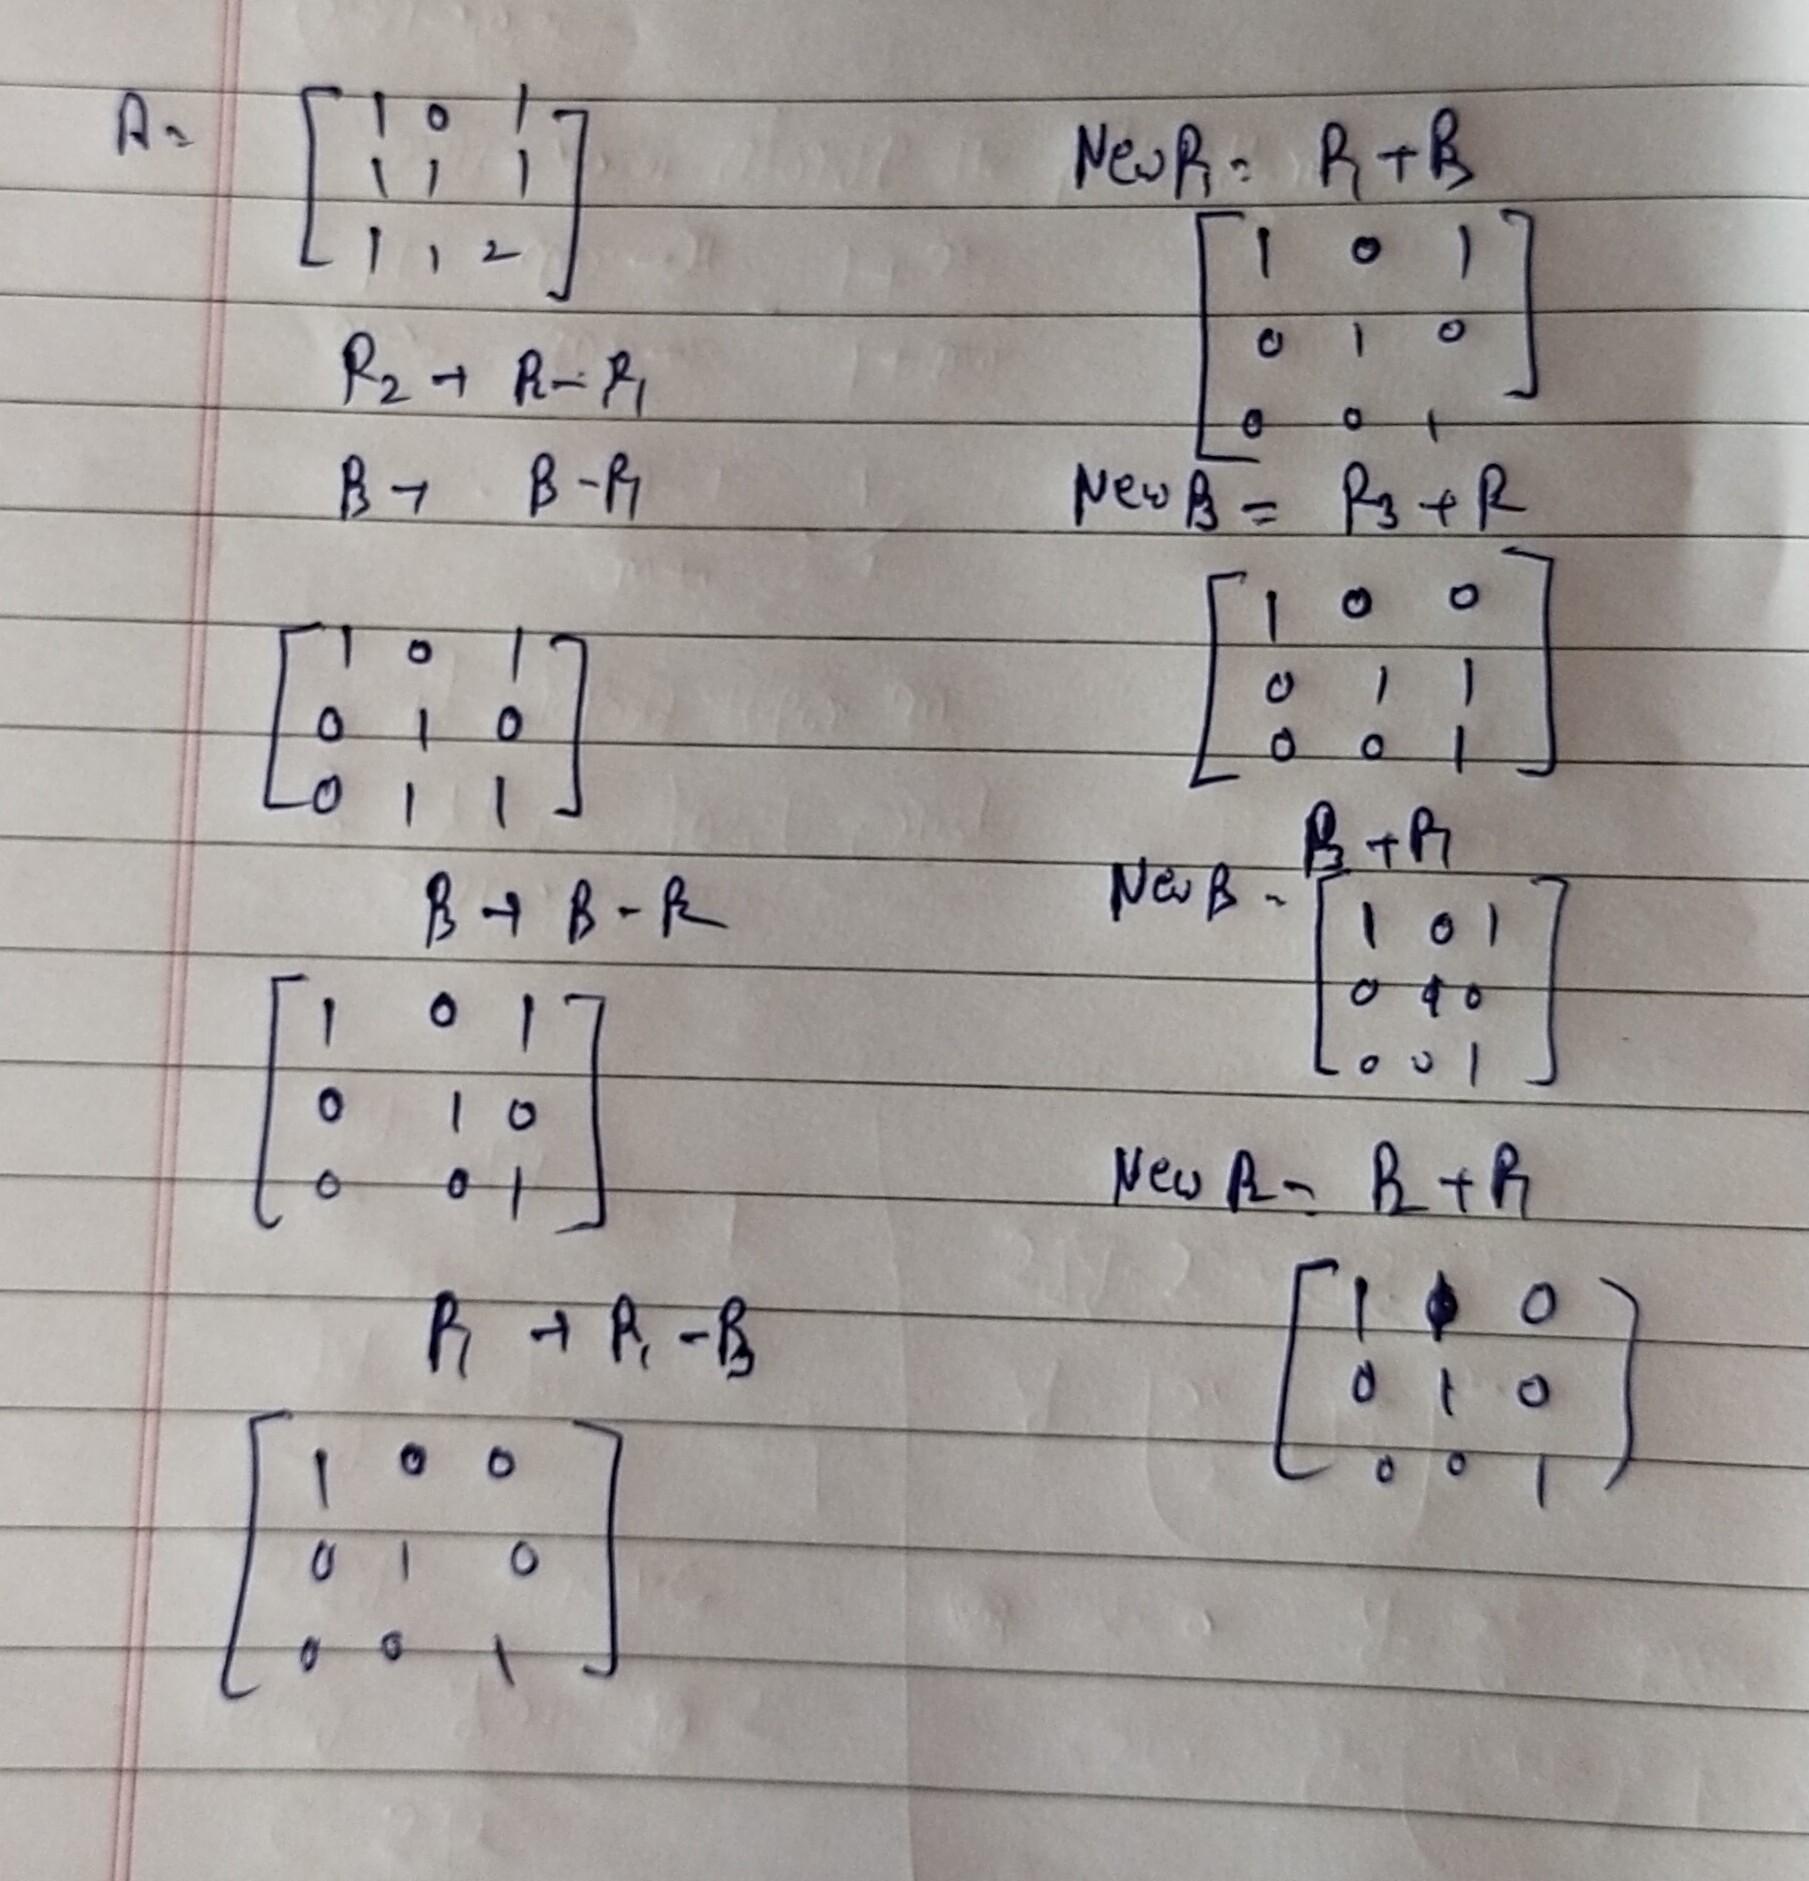 A = [ 1 0 1
1 1 1
1 1 2 ]
R2 → R2 - R1
R3 → R3 - R1
[ 1 0 1
0 1 0
0 1 1 ]
R3 → R3 - R2
[ 1 0 1
0 1 0
0 0 1 ]
R1 → R1 - R3
[ 1 0 0
0 1 0
0 0 1 ]
New R1 = R1 + R3
[ 1 0 1
0 1 0
0 0 1 ]
New R3 = R3 + R2
[ 1 0 0
0 1 1
0 0 1 ]
New R3 = R3 + R1
[ 1 0 1
0 1 0
0 0 1 ]
New R2 = R2 + R1
[ 1 0
0 1 0
0 0 1 ]